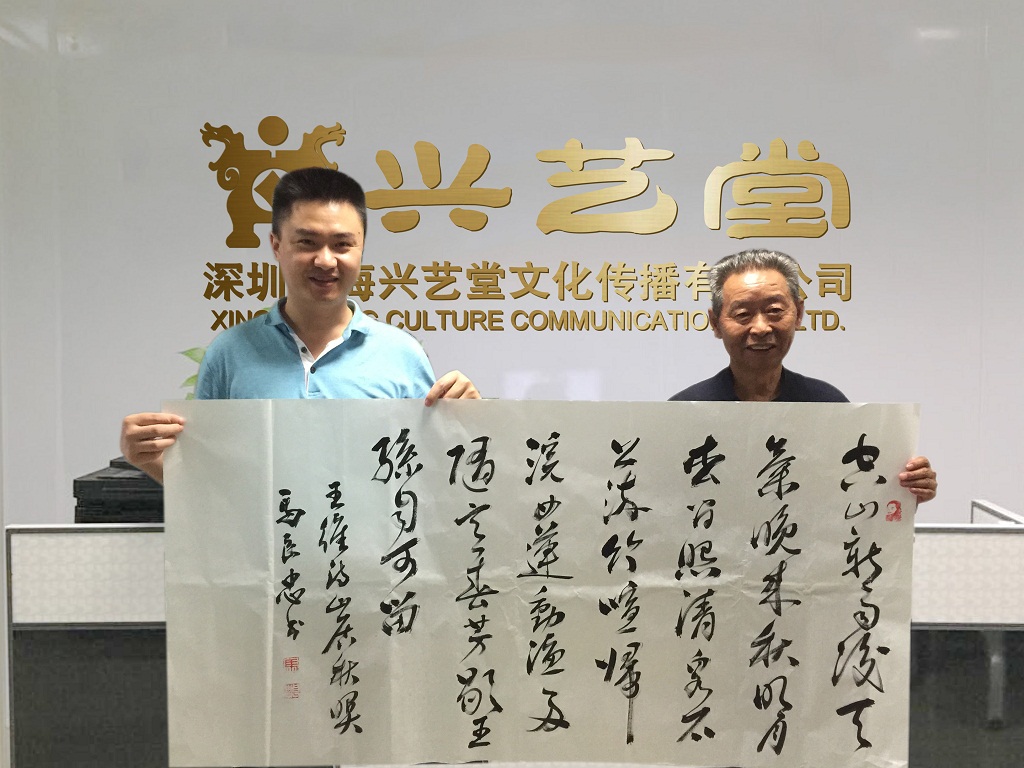 兴艺堂
深圳 海兴艺堂文化传播有 公司
XIN CULTURE COMMUNICATIO LTD.
空山新雨後天
氣晚来秋明月
松間照清泉石
上流竹喧歸
浣女蓮動漁舟
随意春芳歇王
孫自可留
王維诗山居秋暝
馬良忠书